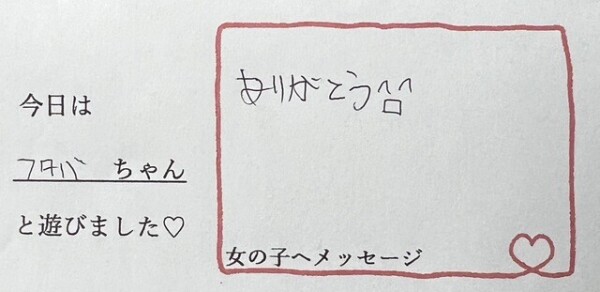 今日は
フタバ ちゃん
と遊びました♡
ありがとう^口^
女の子へメッセージ